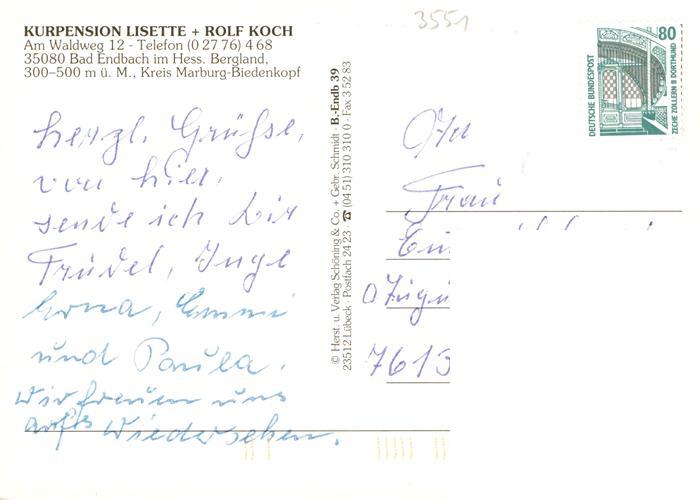 KURPENSION LISETTE + ROLF KOCH
Am Waldweg 12 - Telefon (0 27 76) 4 68
35080 Bad Endbach im Hess. Bergland,
300–500 m ü. M., Kreis Marburg-Biedenkopf
herzl. Grüße,
von hier,
sende ich Dir
Trudel, Inge
Erna, Emmi
und Paula.
Wir freuen uns
aufs Wiedersehen.
© Herst. u. Verlag Schöning & Co. + Gebr. Schmidt · B.-Endb 39
23512 Lübeck · Postfach 24 23 · ☎ (04 51) 310 310 0 · Fax 3 52 83
3551
DEUTSCHE BUNDESPOST
80
ZECHE ZOLLERN II DORTMUND
An
Frau
7613